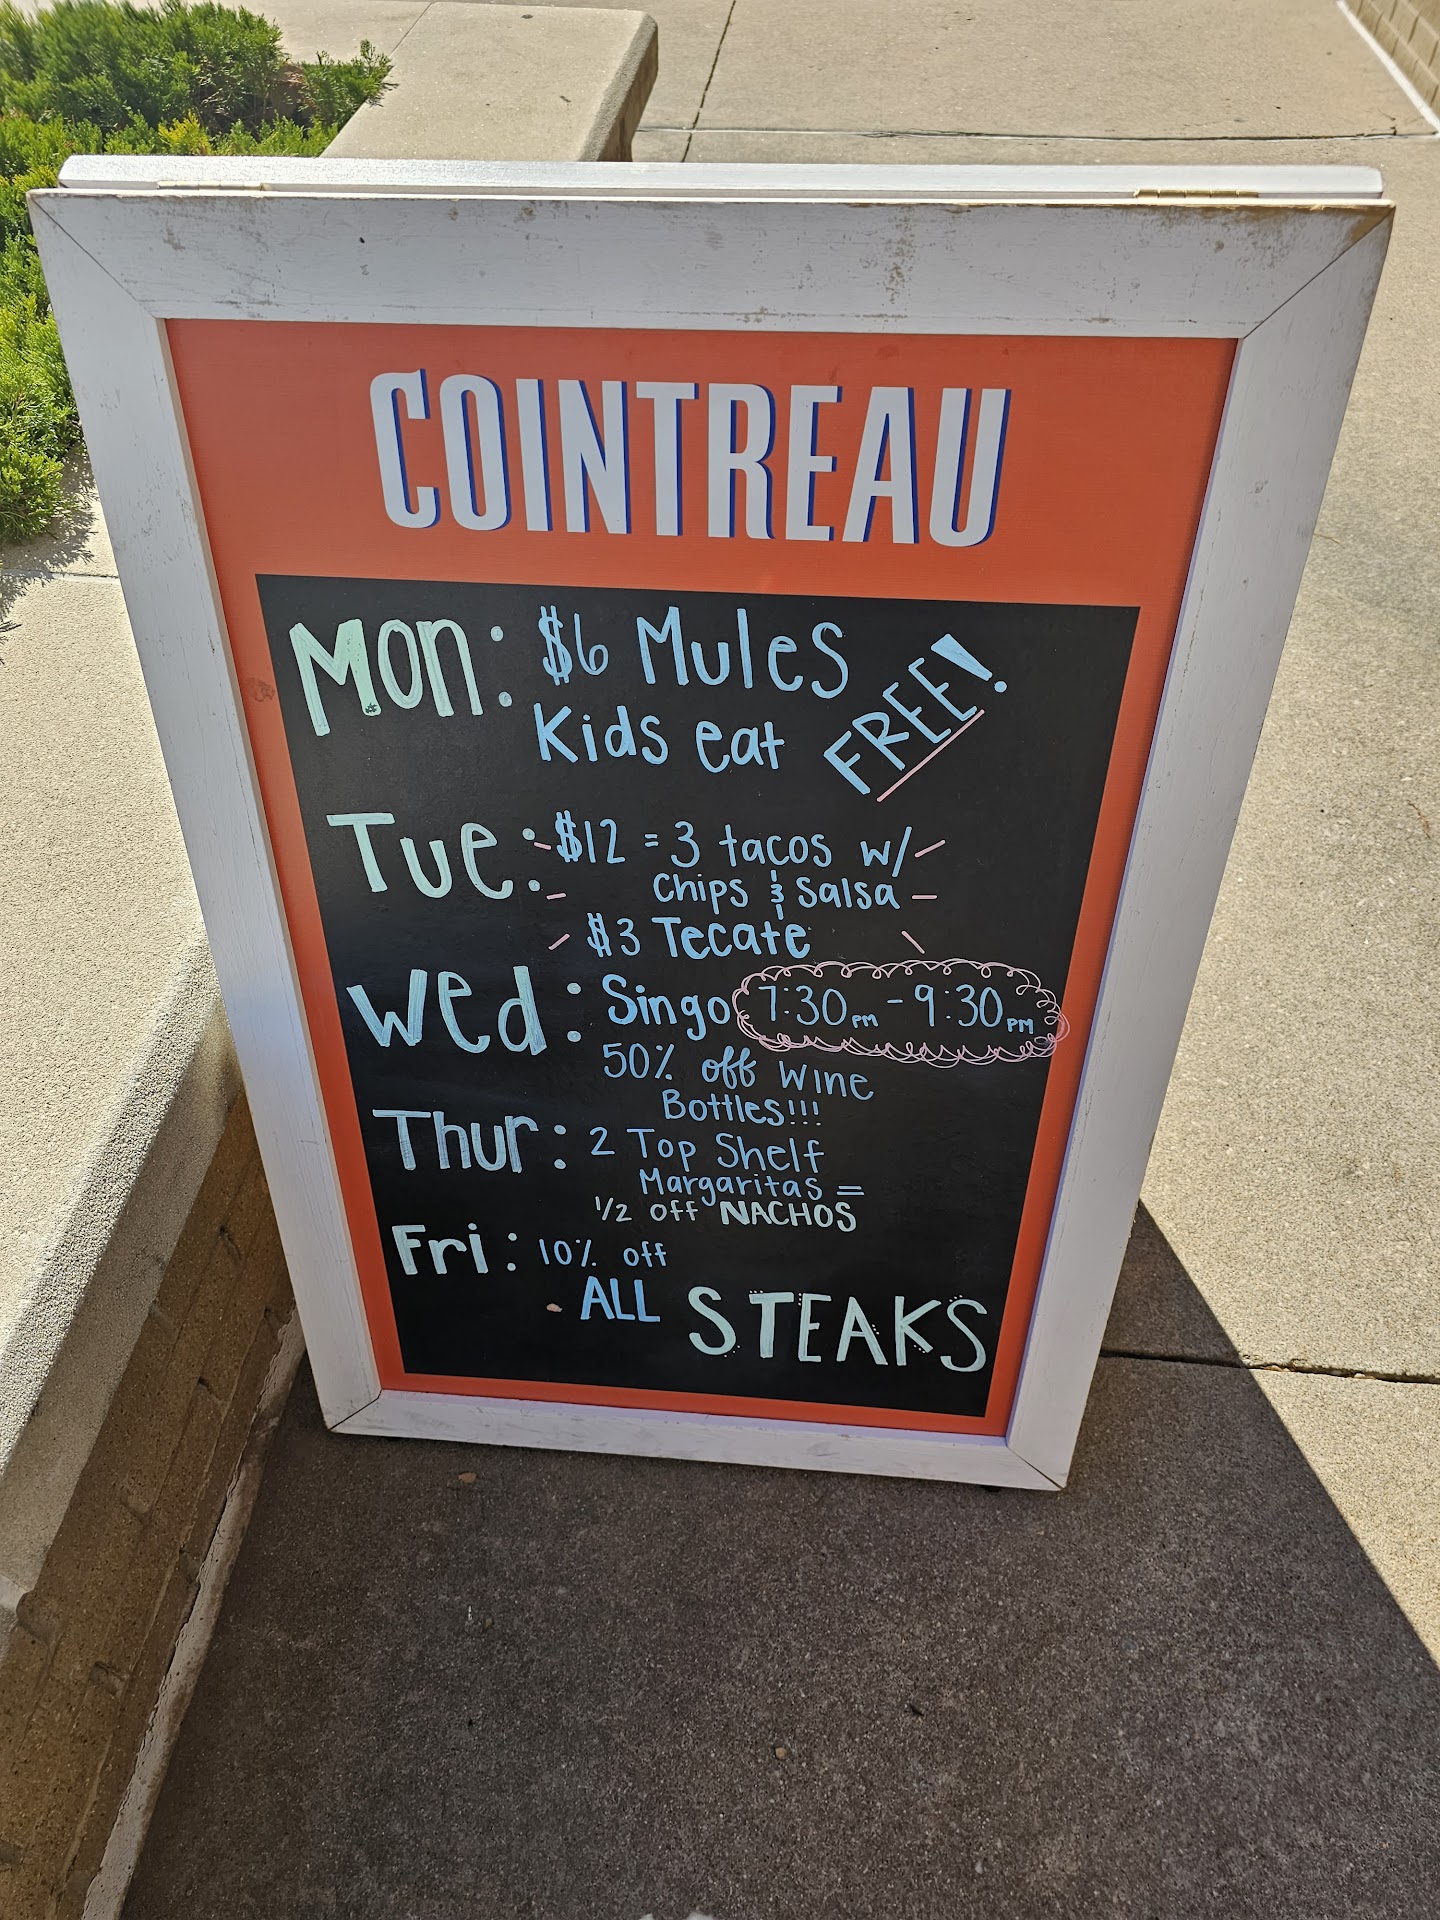 COINTREAU
Mon: $6 Mules
Kids eat FREE!
Tue: $12 = 3 tacos w/
Chips & Salsa
$3 Tecate
Wed: Singo 7:30pm - 9:30pm
50% off Wine
Bottles!!!
Thur: 2 Top Shelf
Margaritas =
1/2 off NACHOS
Fri: 10% off
ALL STEAKS